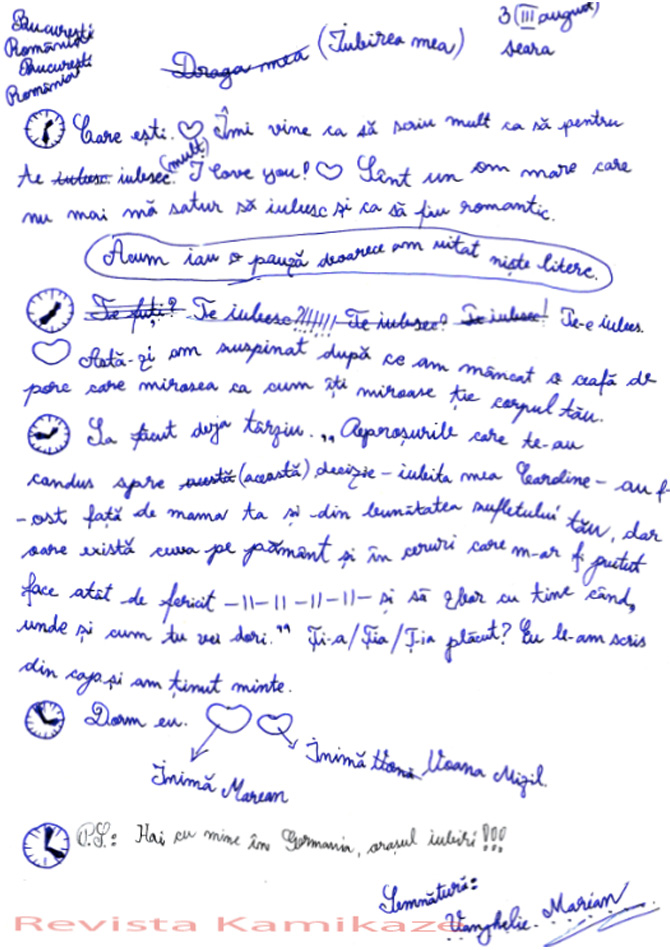 București
Românești
București
România
3 (III august)
seara
Draga mea (Iubirea mea)
Care ești. ♡ Îmi vine ca să scriu mult ca să pentru
te iubesc iubesc. (mult) I love you! ♡ Sânt un om mare care
nu mai mă satur să iubesc și ca să fiu romantic.
Acum iau o pauză deoarece am uitat niște litere.
Te fuți? Te iubesc?!!!!!! Te iubesc? Te iubesc! Te-e iubes.
♡ Astă-zi am suspinat după ce am mâncat o ceafă de
porc care mirosea ca cum îți miroase ție corpul tău.
Sa făcut deja târziu. „Reproșurile care te-au
candus spre acestă (această) decizie - iubita mea - au f-
-ost față de mama ta și din bunătatea sufletului tău, dar
oare există ceva pe pământ și în ceruri care m-ar fi putut
face atât de fericit -11- 11 -11-11- și să zbor cu tine când,
unde și cum tu vei dori." Ți-a/Țîa/T-ia plăcut? Eu le-am scris
din capș și am ținut minte.
Dorm eu. ♡ ♡
Inimă Marean
Inimă Voana Mizil.
P.S.: Hai cu mine în Germania, orașul iubiri!!!
Semnătură:
Vanghelie Marian
Revista Kamikaze